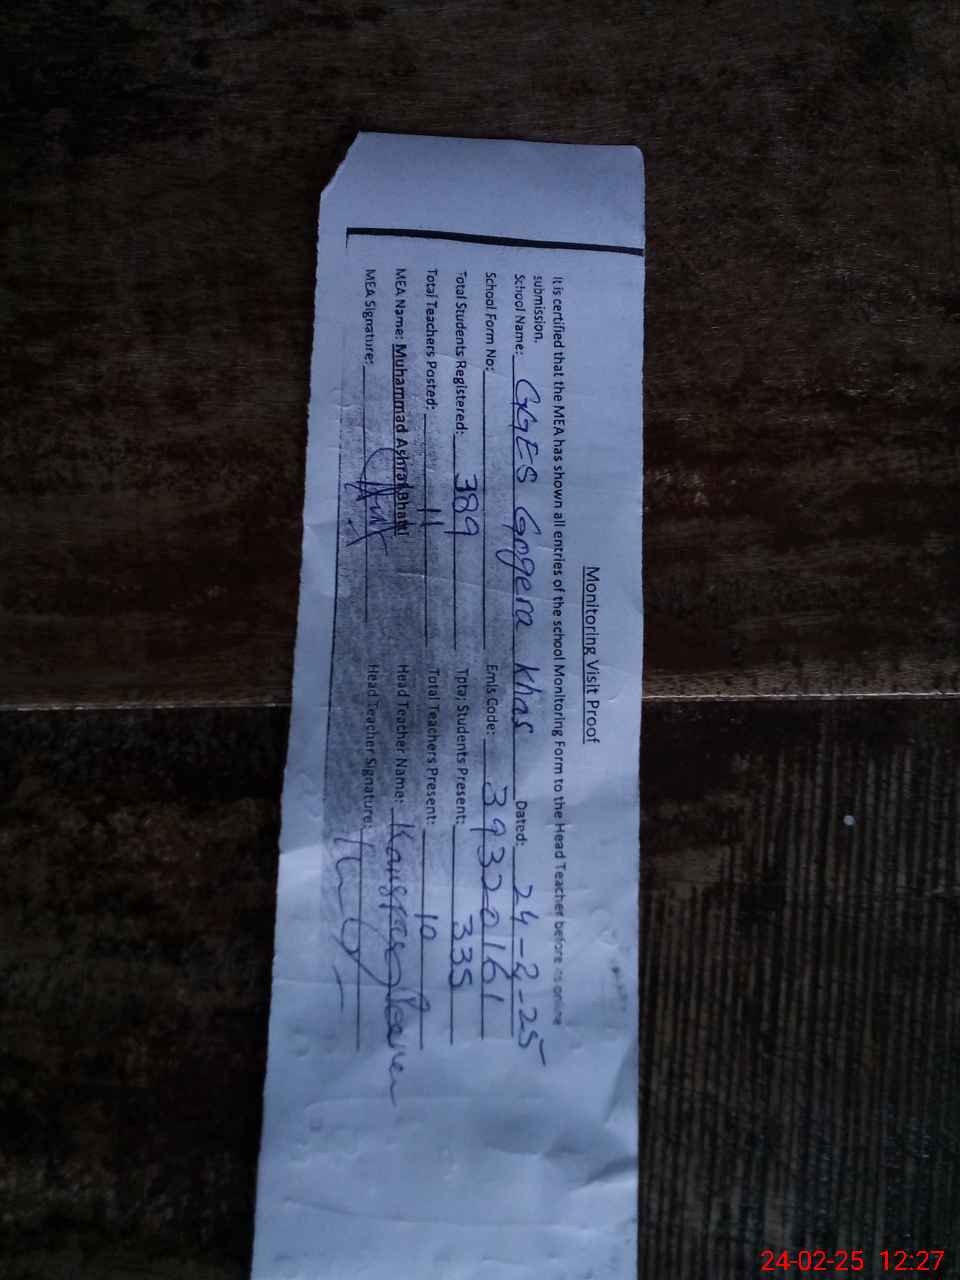 Monitoring Visit Proof
It is certified that the MEA has shown all entries of the school Monitoring Form to the Head Teacher before its online
submission.
School Name: GGES Gogera Khas Dated: 24-2-25
School Form No: Emis Code: 39320161
Total Students Registered: 389 Total Students Present: 335
Total Teachers Posted: 11 Total Teachers Present: 10
MEA Name: Muhammad Ashraf Bhatti Head Teacher Name: Kausar
MEA Signature: Head Teacher Signature:
24-02-25 12:27